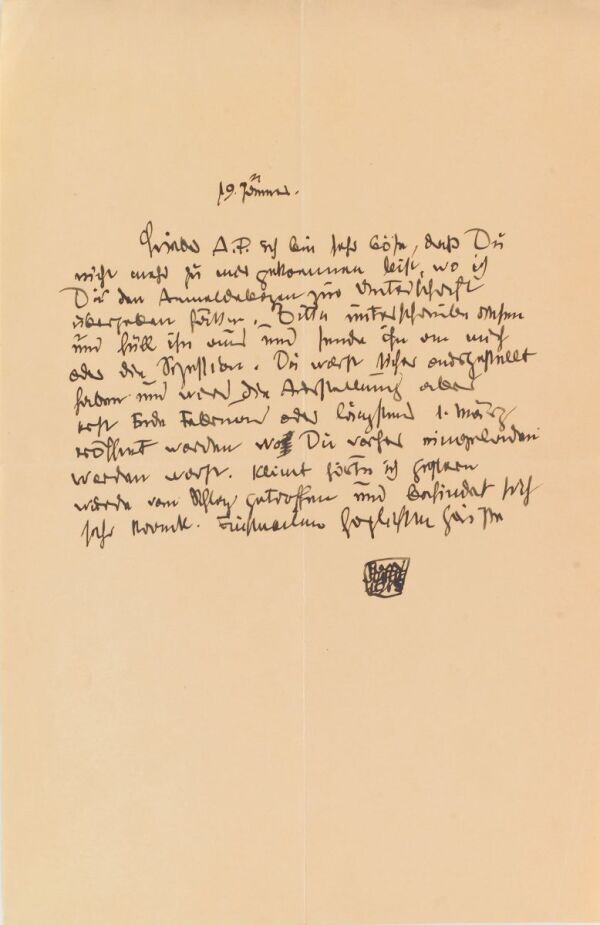 19. Jänner.
Lieber A.P. Ich bin sehr böse, daß Du
nicht mehr zu mir gekommen bist, wo ich
Dir den Anmeldebogen zur Unterschrift
übergeben hätte. Bitte unterschreibe diesen
und füll ihn aus und sende ihn an mich
oder die Sezession. Du wirst sicher ausgestellt
haben und wird die Ausstellung aber
erst Ende Februar oder längstens 1. März
eröffnet werden wo Du vorher eingeladen
werden wirst. Klimt hörte ich gestern
wurde vom Schlag getroffen und befindet sich
sehr krank. Einstweilen herzlichste Grüße